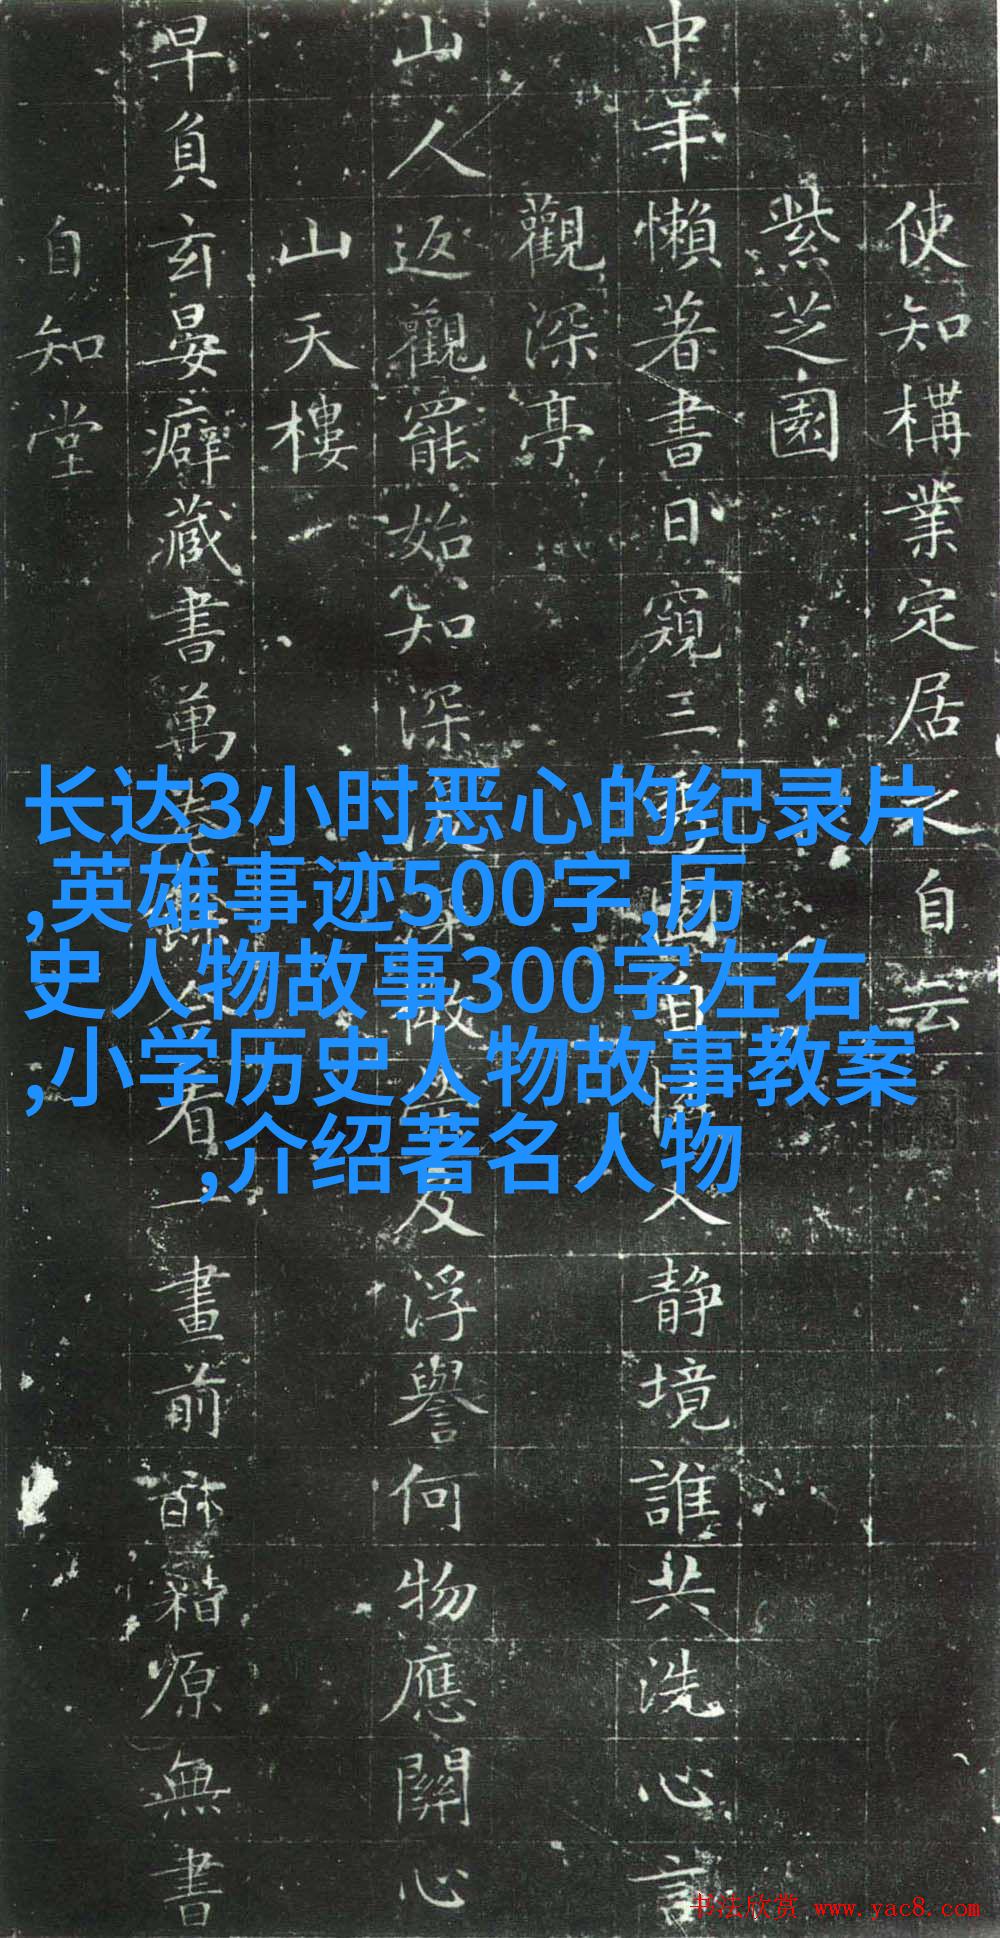 使知構業定居自云
紫芝園
中年懶著書日窺三自人靜境誰共洗心言
觀深亭
山人返觀罷始知深浮譽何物應關心
山天樓
早負玄晏癖藏書萬看一畫前籍原無書
自知堂
长达3小时恶心的纪录片
,英雄事迹500字,历
史人物故事300字左右
,小学历史人物故事教案
,介绍著名人物
书法欣赏 www.yac8.com